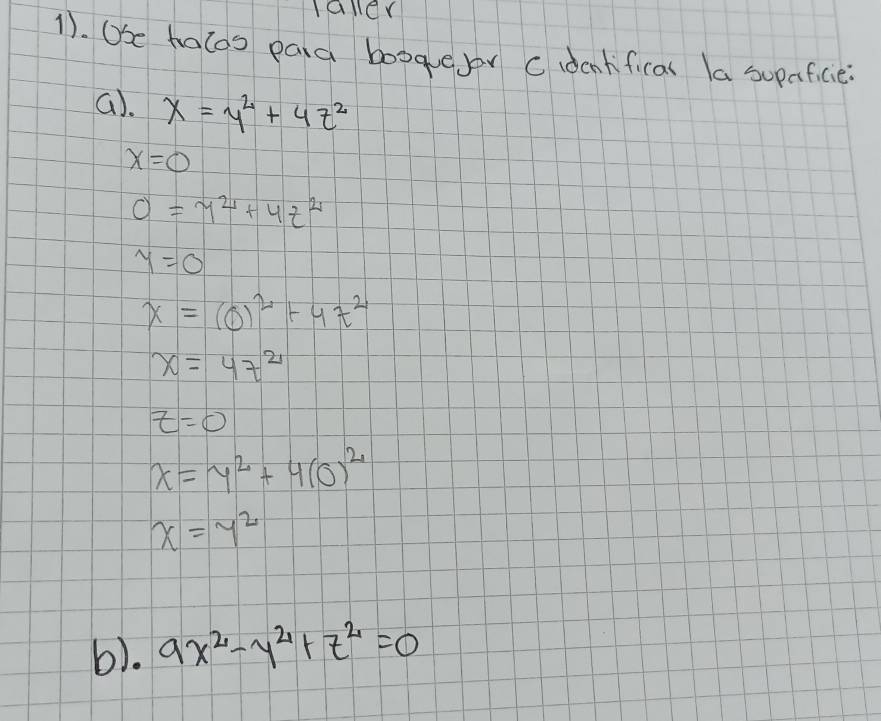 Taller
1). Use trazas para bosquejar e identificar la superficie:
a). x = y² + 4z²
x=0
0 = y² + 4z²
y=0
x = (0)² + 4z²
x = 4z²
z=0
x = y² + 4(0)²
x = y²
b). 9x² - y² + z² = 0